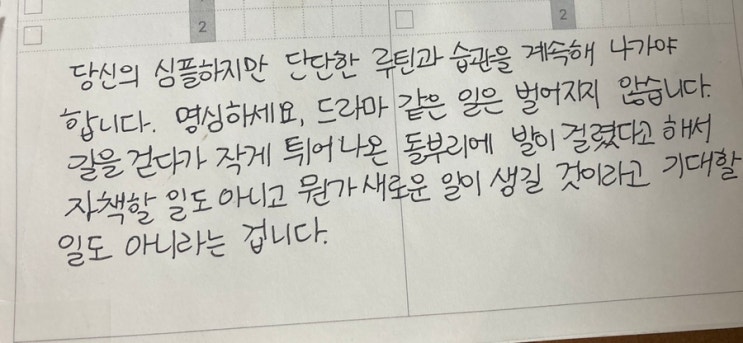 2
2
당신의 심플하지만 단단한 루틴과 습관을 계속해 나가야
합니다. 명심하세요, 드라마 같은 일은 벌어지지 않습니다.
길을 걷다가 작게 튀어나온 돌부리에 발이 걸렸다고 해서
자책할 일도 아니고 뭔가 새로운 일이 생길 것이라고 기대할
일도 아니라는 겁니다.